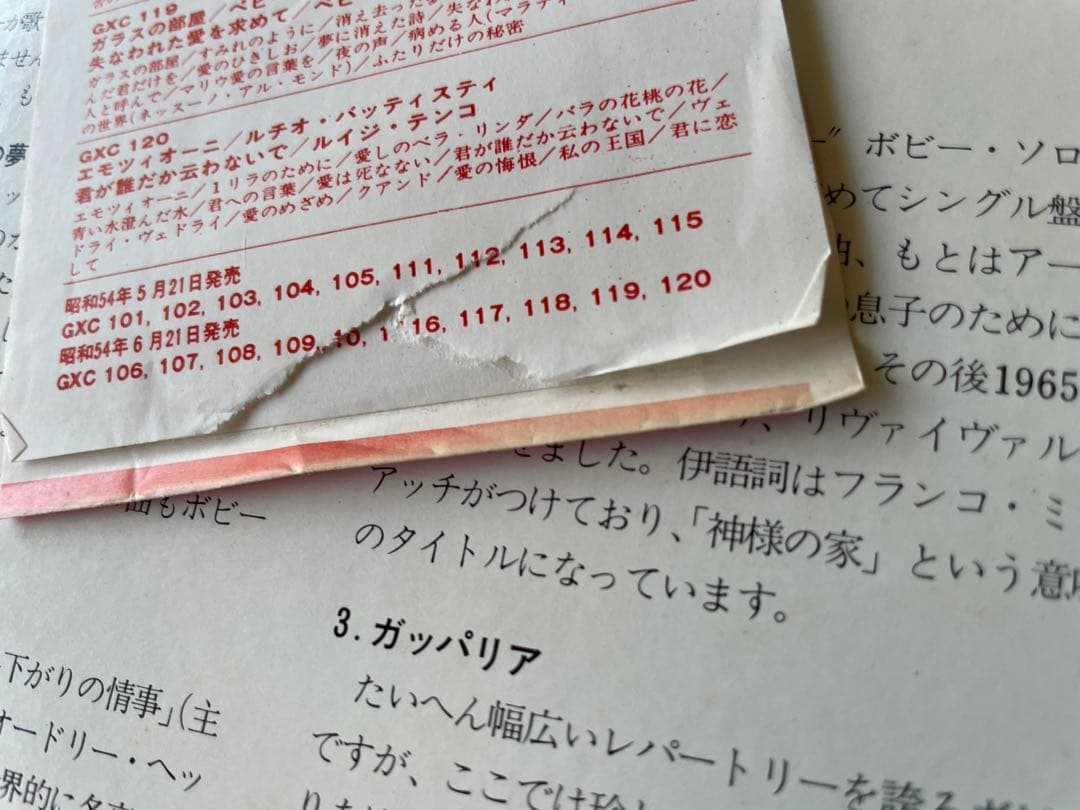 GXC 119
ガラスの部屋/ペピ
失なわれた愛を求めて/ペピ
ガラスの部屋/すみれのように/消え去った夢
んだ君だけを/愛のひきしお/夢に消えた詩/失なわ
人と呼んで/マリウ愛の言葉を/夜の声/病める人(マラティ
の世界(ネッスーノ・アル・モンド)/ふたりだけの秘密
GXC 120
エモツィオーニ/ルチオ・バッティスティ
君が誰だか云わないで/ルイジ・テンコ
エモツィオーニ/1リラのために/愛しのベラ・リンダ/バラの花桃の花/
青い水澄んだ水/君への言葉/愛は死なない/君が誰だか云わないで/ヴェ
ドライ・ヴェドライ/愛のめざめ/クアンド/愛の悔恨/私の王国/君に恋
して
昭和54年5月21日発売
GXC 101, 102, 103, 104, 105, 111, 112, 113, 114, 115
昭和54年6月21日発売
GXC 106, 107, 108, 109, 10, 1 16, 117, 118, 119, 120
か歌
ません
も
の夢
曲もボビー
下がりの情事」(主
オードリー・ヘッ
界的に名
ボビー・ソロ
めてシングル盤
もとはアー
息子のために
その後1965
リヴァイヴァル
きました。伊語詞はフランコ・ミ
アッチがつけており、「神様の家」という意味
のタイトルになっています。
3.ガッパリア
たいへん幅広いレパートリーを誇る
ですが、ここでは珍し